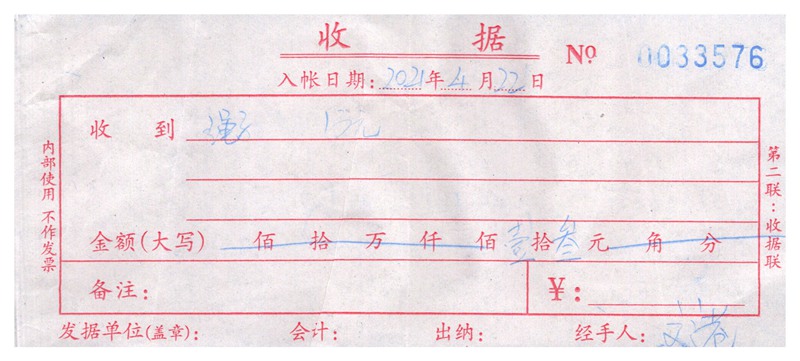 收据 № 0033576
入帐日期：2021年4月22日
收到 13元
金额(大写) 佰拾万仟佰壹拾叁元角分
备注：
¥：
发据单位(盖章)： 会计： 出纳： 经手人：
内部使用 不作发票
第二联：收据联